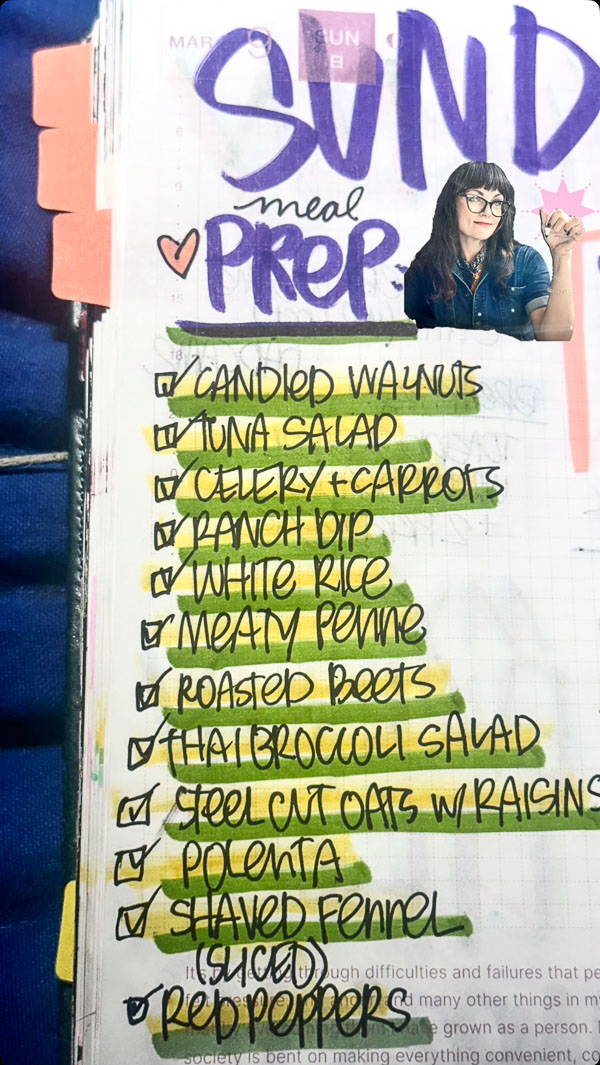 MAR 9 SUN
8
SUND
meal
PREP
CANDIED WALNUTS
TUNA SALAD
CELERY + CARROTS
RANCH DIP
WHITE RICE
MEATY PENNE
ROASTED BEETS
THAI BROCCOLI SALAD
STEEL CUT OATS W/ RAISINS
POLENTA
SHAVED FENNEL
(SLICED)
RED PEPPERS
through difficulties and failures that pe
and many other things in my
grown as a person.
society is bent on making everything convenient, co